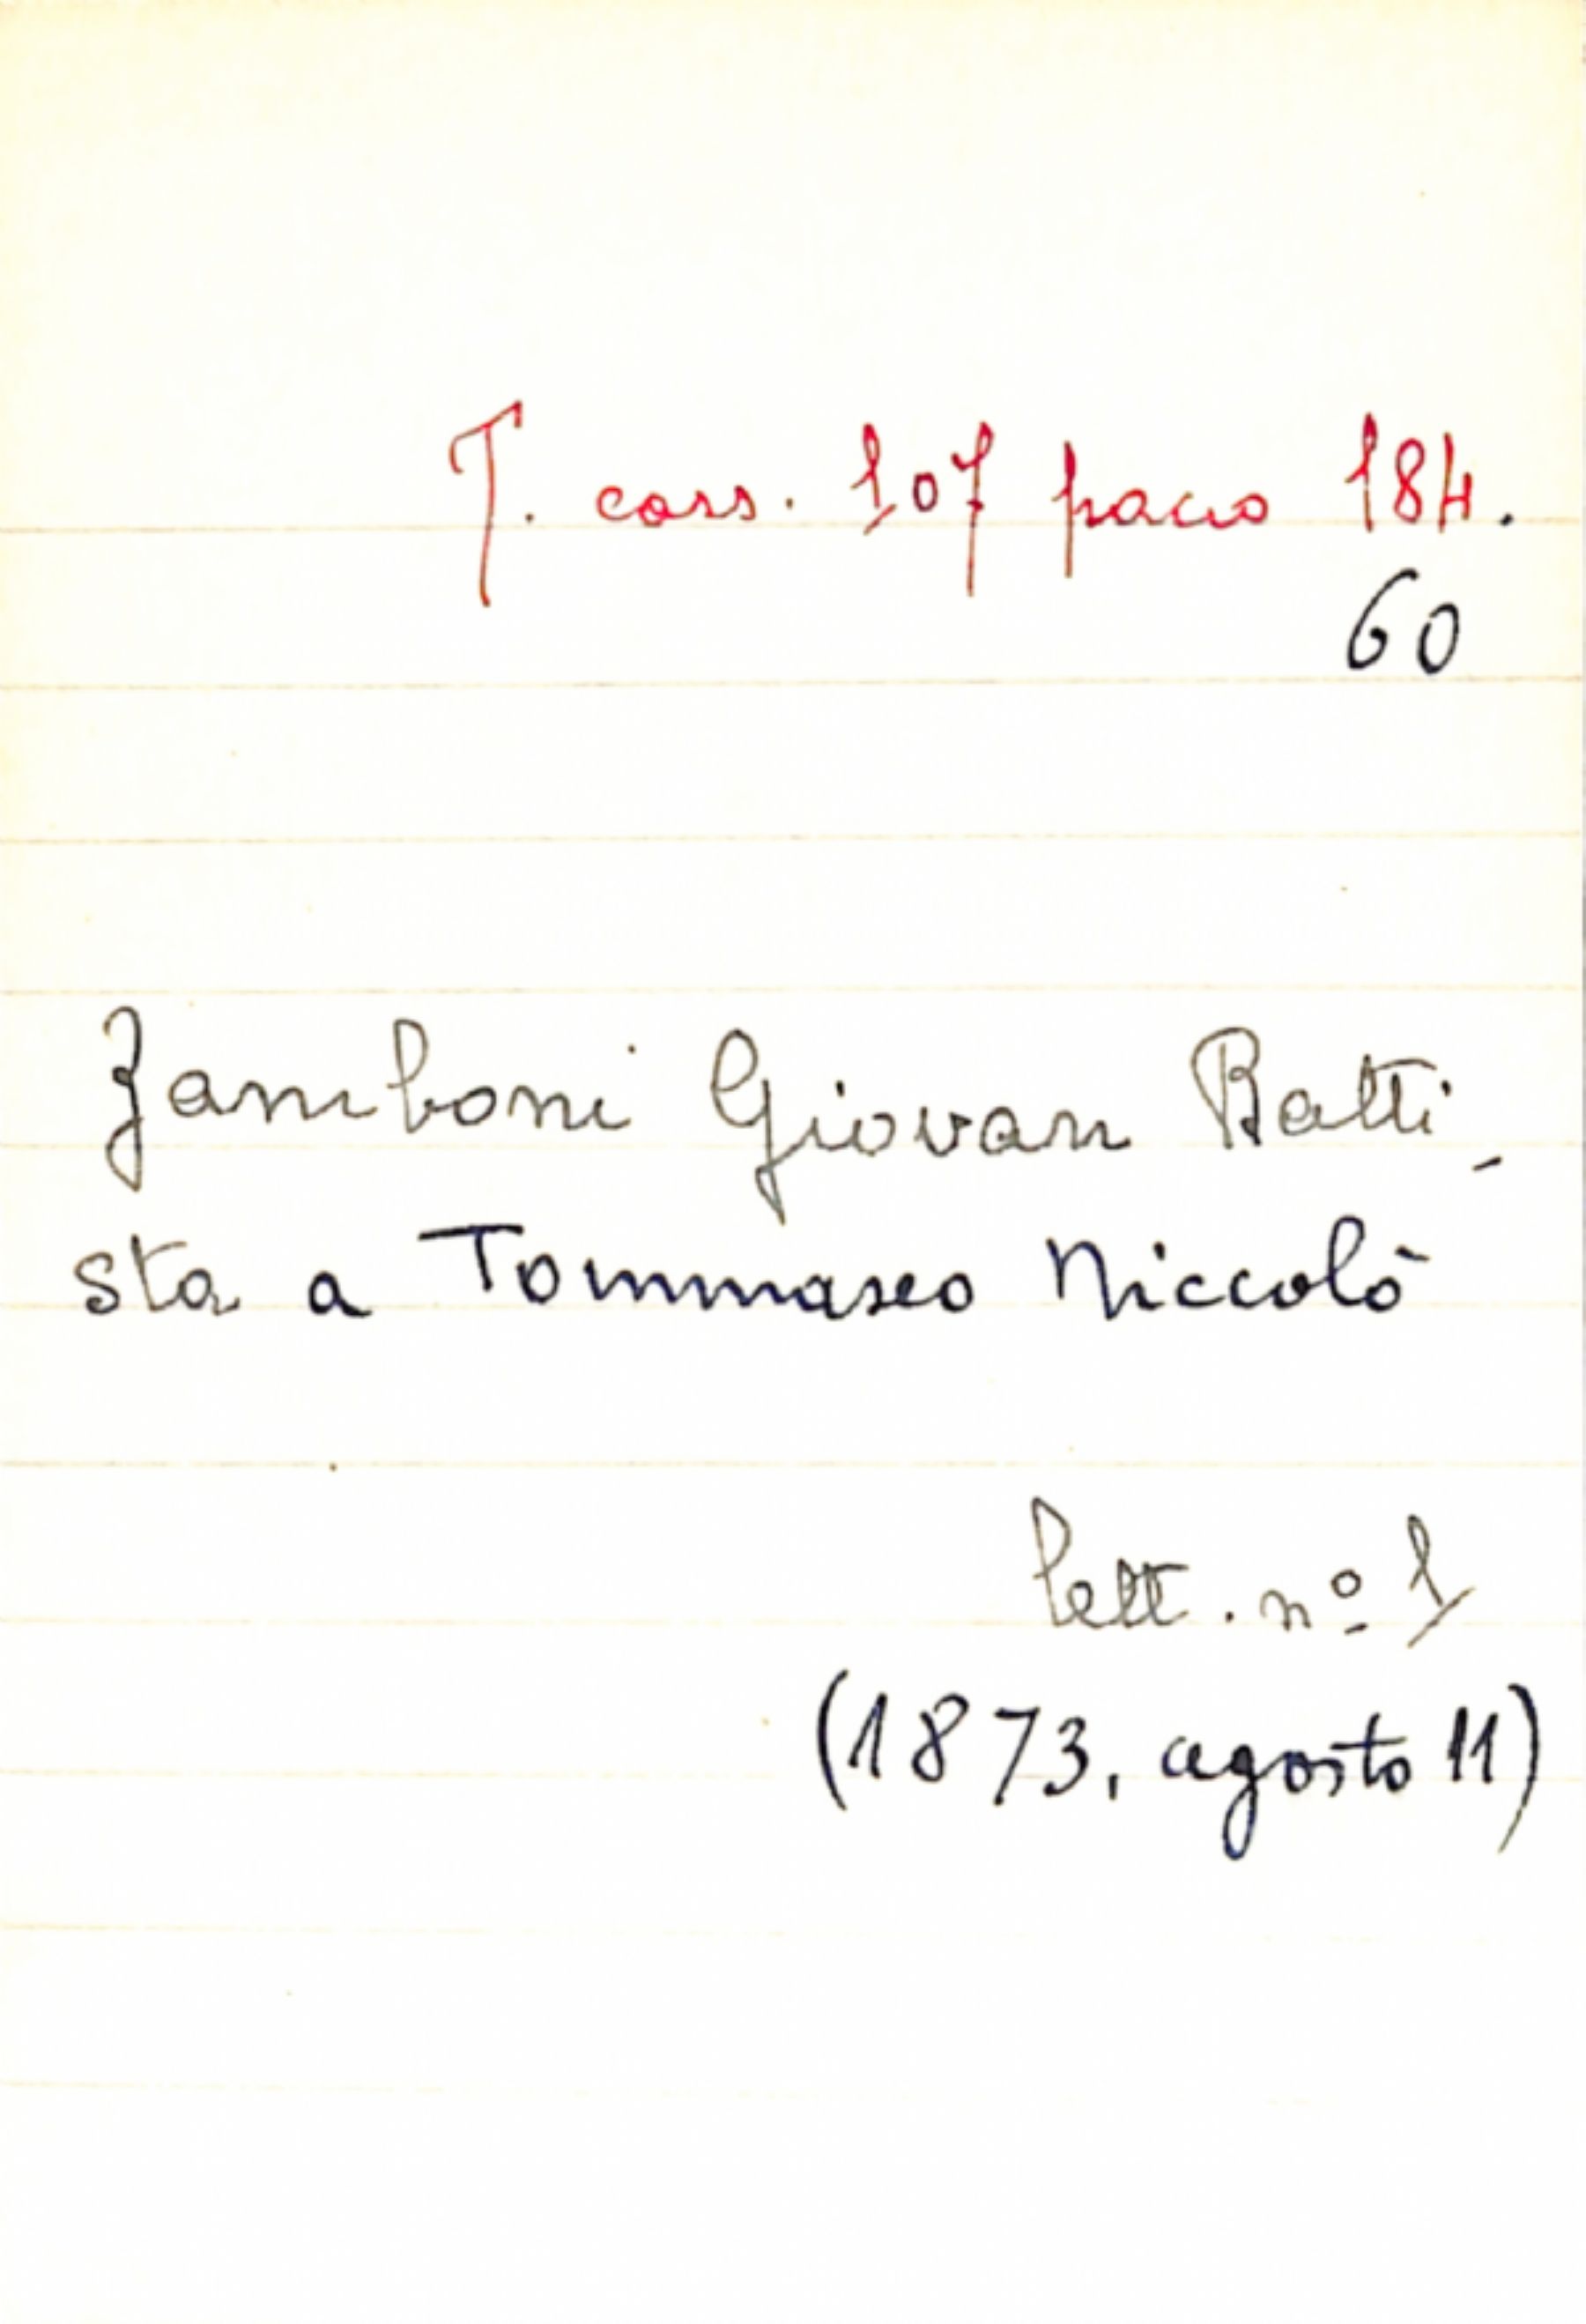 T. cass. 107 pacco 184.
60
Zamboni Giovan Batti-
sta a Tommaseo Niccolò
lett. nº 1
(1873, agosto 11)